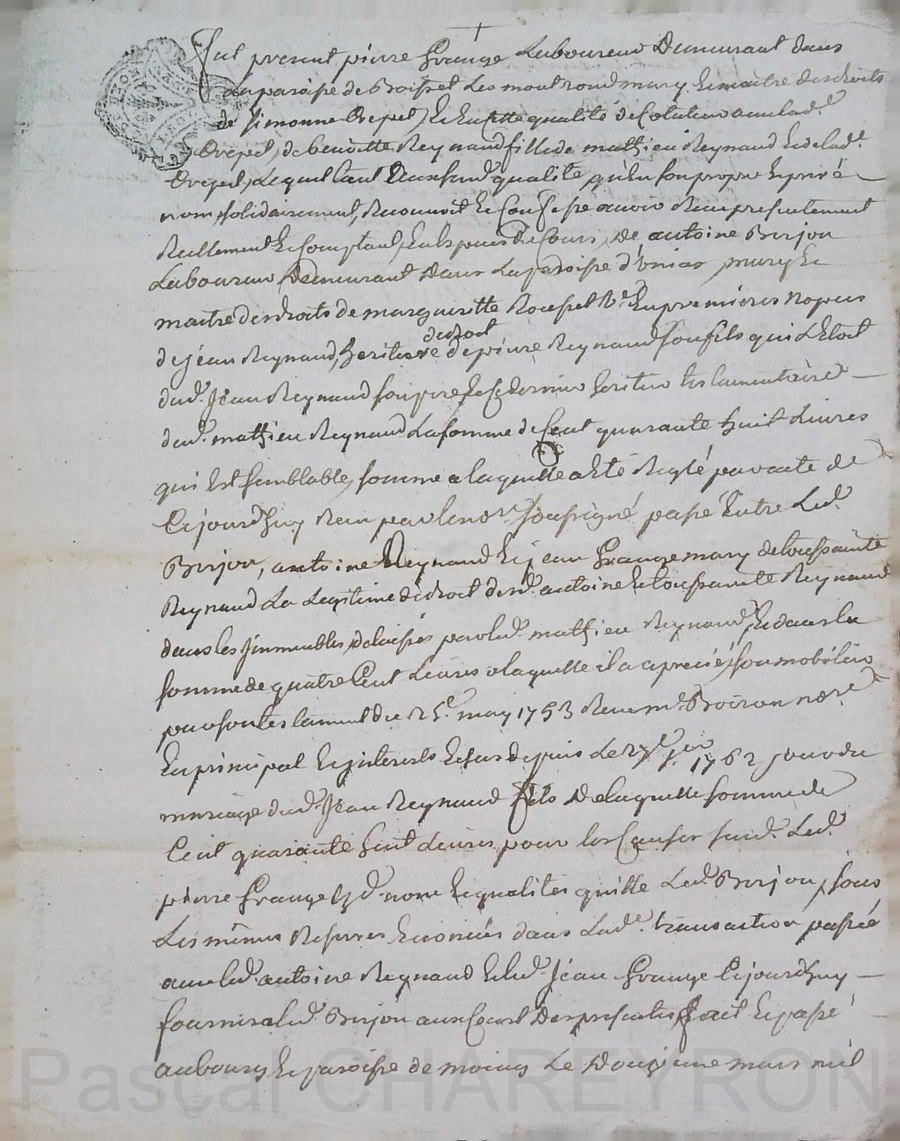 fut present pierre Grange Laboureur Demeurant dans
La paroisse de Boisset Les montrond mary Et maitre des droits
de Simonne Crepet, Et En Cette qualité de Cotuteur avec lad.e
Crepet, de benoitte Reynaud fille de mathieu Reynaud Et de lad.e
Crepet, Lequel tant Auxsusd. qualité qu'En son propre Et privé
nom, solidairement, Reconnoit Et Confesse avoir Reçu presentement
Reellement Et Comptant, En Espèces De Cours, de antoine Borjon
Laboureur Demeurant Dans La paroisse d'unias, mary Et
maitre des droits de margueritte Rousset V.e En premieres nopces
de jean Reynaud, heritiere de droit de pierre Reynaud son fils qui L'Etoit
dud. Jean Reynaud son pere Et Ce dernier heritier testamentaire
dud. mathieu Reynaud La somme de Cent quarante huit Livres
qui Est semblable, somme a laquelle a Eté Reglé par acte de
Cejourdhuy Reçu par le no.re soussigné passé Entre Led.
Borjon, antoine Reynaud Et jean Grange mary de toussainte
Reynaud La Legitime de droit desd. antoine Et toussainte Reynaud
dans les Immeubles delaissés par led. mathieu Reynaud, Et dans la
somme de quatre Cent Livres a laquelle il a aprecié, son mobilier
par son testament du 25.e may 1753 Reçu m.e Boiron no.re
En principal Et interests Echus depuis Le 27.e 1762 jour du
mariage dud. Jean Reynaud fils De laquelle somme de
Cent quarante huit Livres pour les Causes susd. Led.
pierre Grange Esd. nom Et qualités quitte Led. Borjon, sous
Les mêmes Reserves Enoncées dans Lad.e transaction passée
avec led. antoine Reynaud Et led. Jean Grange Cejourdhuy
fournira led. Borjon aux Cout Des presentes, fait Et passé
au bourg Et paroisse de moing Le Douzieme mars mil
Pascal CHAREYRON